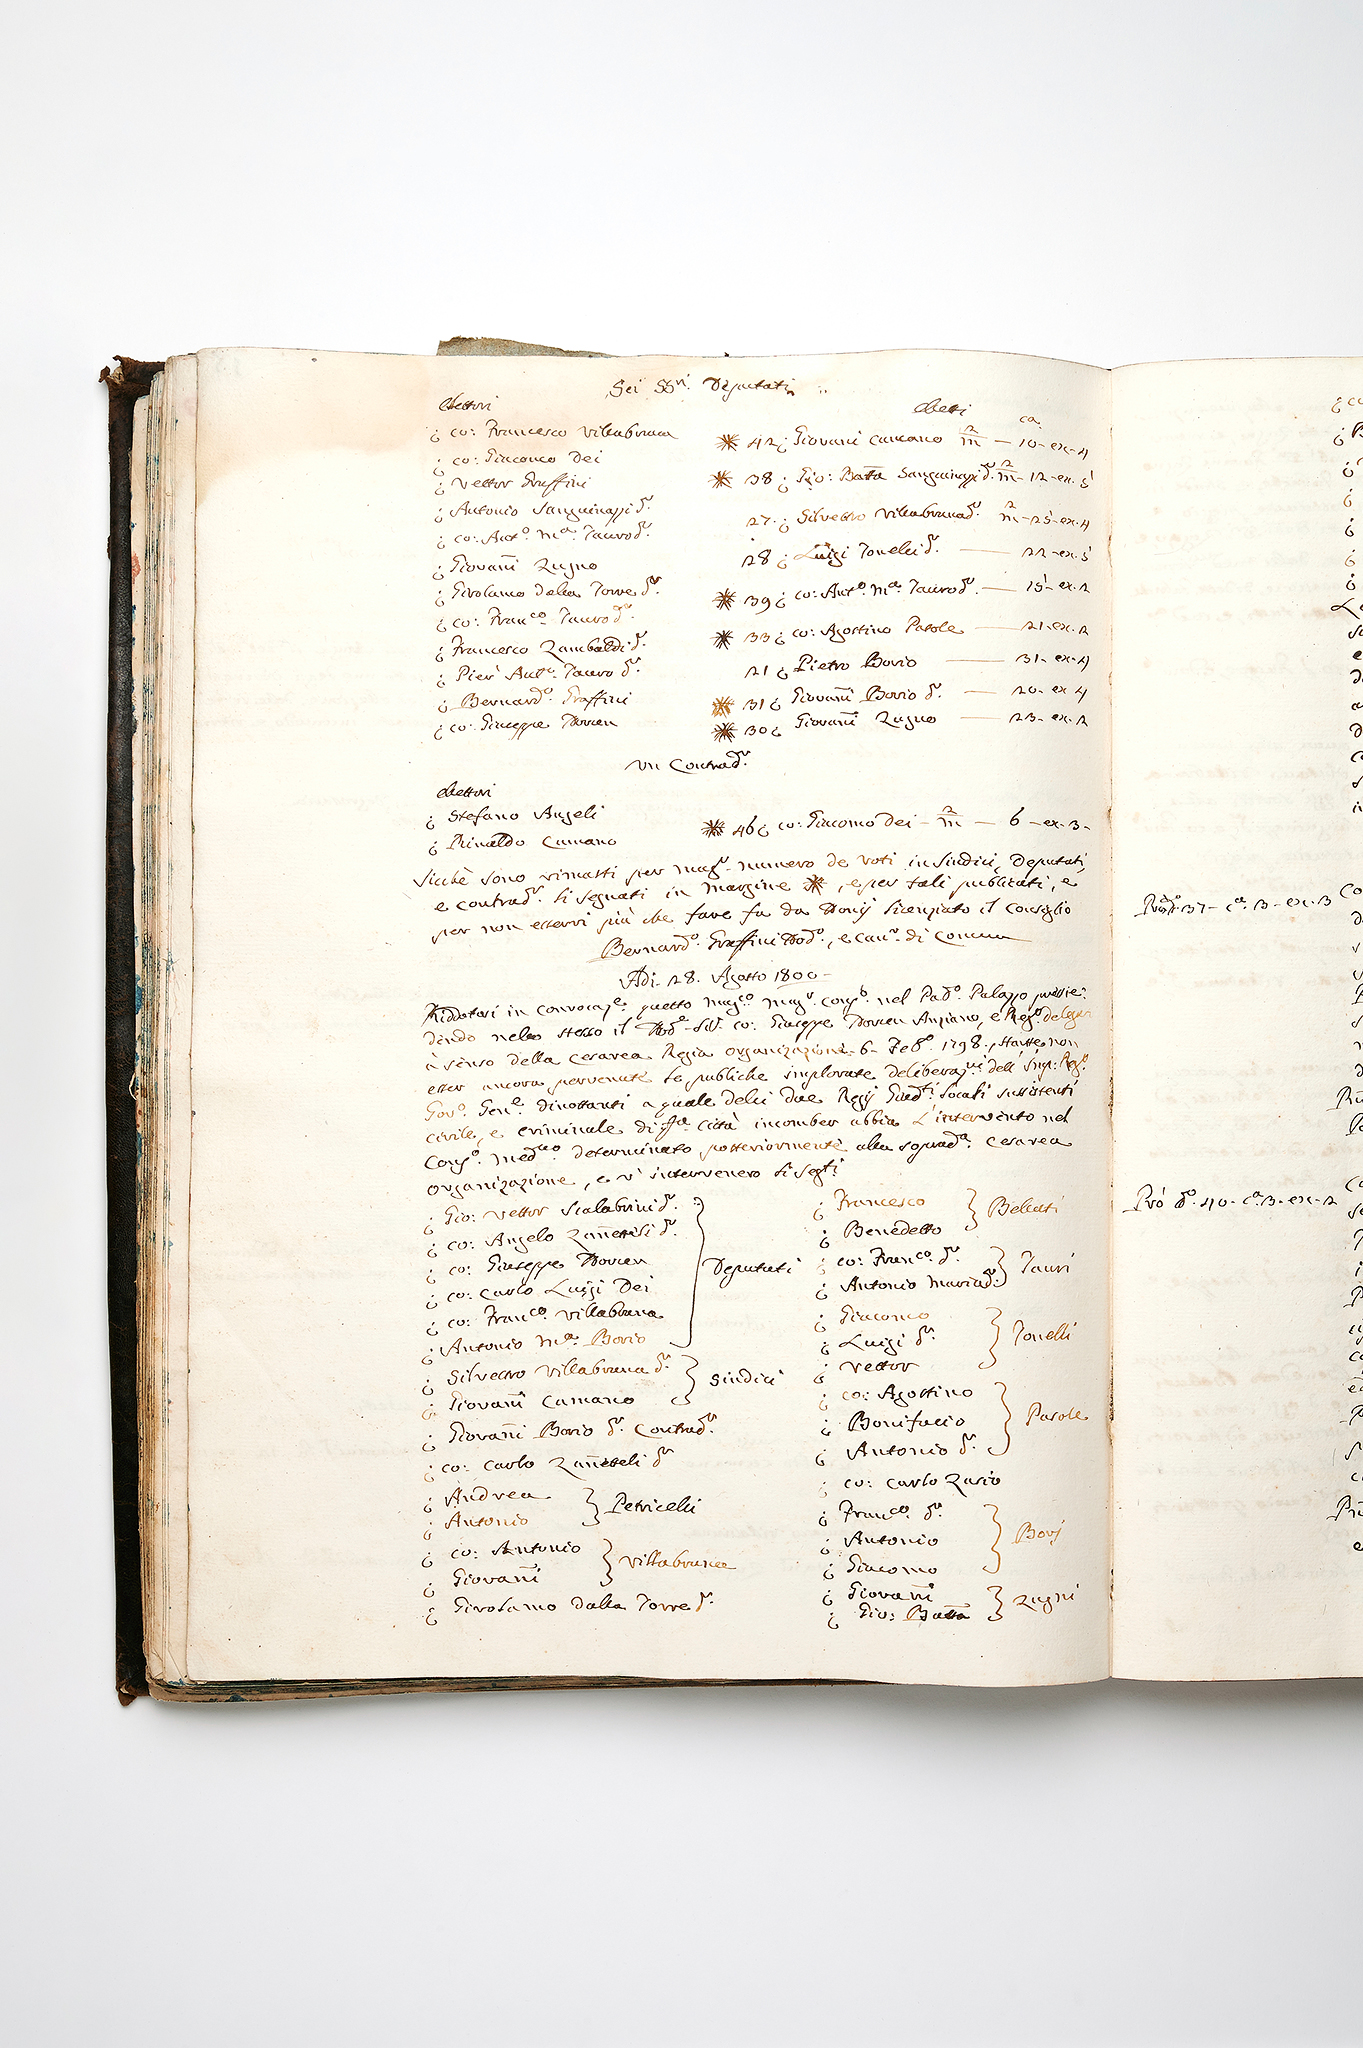 Sei SS.ri Deputati
Elettori
¿ co: Francesco Villabruna
¿ co: Giacomo Dei
¿ Vettor Graffini
¿ Antonio Sanguinazzi D.r
¿ co: Ant.o M.a Tauro D.r
¿ Giovani Zugno
¿ Girolamo dalla Torre D.r
¿ co: Fran.co Tauro D.r
¿ Francesco Zambaldi D.r
¿ Pier Ant.o Tauro D.r
¿ Bernard.o Graffini
¿ co: Giuseppe Dorien
Eletti ca.
42 ¿ Giovani Cumano — 10 - ex - 4
38 ¿ Gio: Batta Sanguinazzi D.r - 12 - ex. 5
27. ¿ Silvestro Villabruna D.r - 25 - ex. 4
28 ¿ Luigi Tonelli D.r — 22 - ex. 5
39 ¿ co: Ant.o M.a Tauro D.r — 15 - ex. 2
33 ¿ co: Agostino Pasole — 21 - ex. 2
21 ¿ Pietro Bovio — 31 - ex. 4
31 ¿ Giovani Bovio D.r — 20 - ex 4
30 ¿ Giovani Zugno — 23 - ex. 2
Un Contrad.r
Elettori
¿ Stefano Angeli
¿ Rinaldo Cumano
46 ¿ co: Giacomo Dei — 6 - ex - 3 -
Sicchè sono rimasti per mag.r numero de voti in Sindici, Deputati,
e contrad.r li segnati in margine , e per tali publicati, e
per non esservi più che fare fu da licenziato il Consiglio
Bernard.o Graffini Nod.o, e Can.r di Comun
Adi. 28. Agosto 1800 -
Riddotosi in convocaz.e questo mag.co mag.r Cons.o nel Pad.o Palazzo presie:
dendo nello stesso il co: Giuseppe Dorien Anziano, e Reg.o delegato
à senso della Cesarea Regia organizazione 6. Feb.o 1798., stante non
esser ancora pervenute le publiche implorate deliberaz.ni dell' Imp: Reg.o
Gov.o Gen.e dinottanti a quale delli due Regj Giud.ti locali sussistenti
civile, e criminale di q.ta Città incomber abbia l'intervento nel
Cons.o med.mo determinato posteriormente alla soprad.a Cesarea
organizazione, e v'intervenero li seg.ti
¿ Gio: Vettor Scalabrini D.r
¿ co: Angelo Zanettelli D.r
¿ co: Giuseppe Dorien
¿ co: Carlo Luigi Dei
¿ co: Fran.co Villabruna
¿ Antonio M.a Bovio
Deputati
¿ Silvestro Villabruna D.r
¿ Giovani Cumano
Sindici
¿ Giovani Bovio D.r Contrad.r
¿ co: Carlo Zanetteli D.r
¿ Andrea
¿ Antonio
Petricelli
¿ co: Antonio
¿ Giovani
Villabruna
¿ Girolamo dalla Torre D.r
¿ Francesco
¿ Benedetto
Bellati
¿ co: Fran.co D.r
¿ Antonio Maria D.r
Tauri
¿ Giacomo
¿ Luigi D.r
¿ Vettor
Tonelli
¿ co: Agostino
¿ Bonifacio
¿ Antonio D.r
Pasole
¿ co: Carlo Zasio
¿ Fran.co D.r
¿ Antonio
¿ Giacomo
Bovj
¿ Giovani
¿ Gio: Batta
Zugni
37 - c.a 3 - ex - 3
Prò D.o 40 - c.a 3 - ex - 2